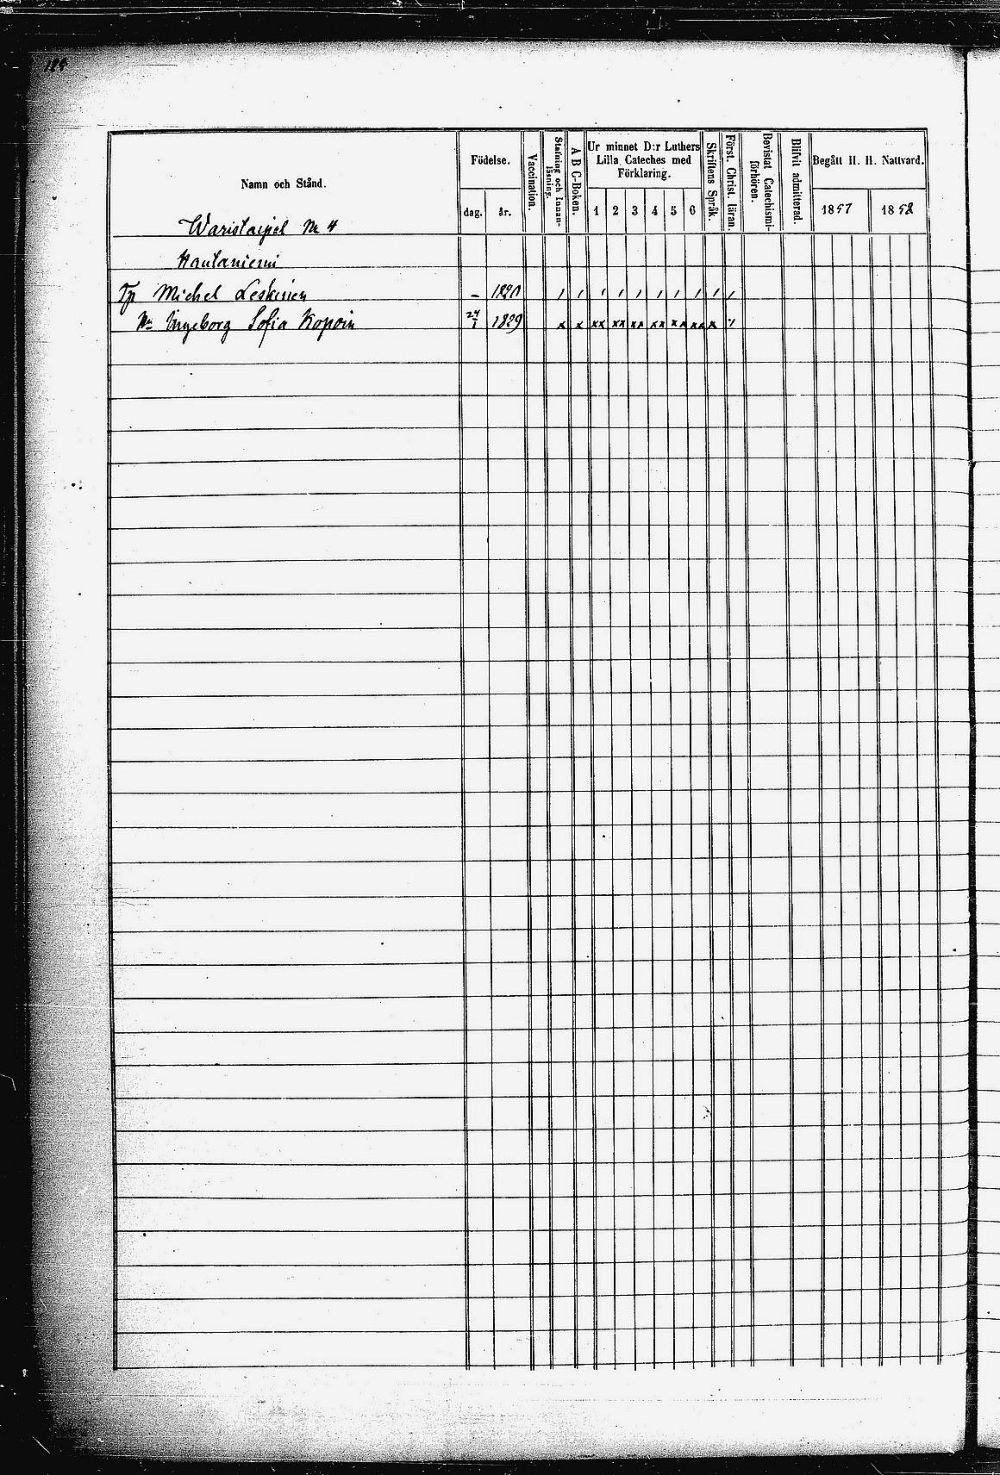 Namn och Stånd.
Födelse.
dag. år.
Vaccination.
Stafning och Innan-
läsning.
A B C-Boken.
Ur minnet D:r Luthers
Lilla Cateches med
Förklaring.
1 2 3 4 5 6
Skriftens Språk.
Först. Christ. läran.
Bevistat Catechismi-
förhören.
Blifvit admitterad.
Begått H. H. Nattvard.
1857 1858
Waristaipal № 4
Hautaniemi
Tp Michel Leskinen – 1820
Hu Ingeborg Sofia Kopoin 1829